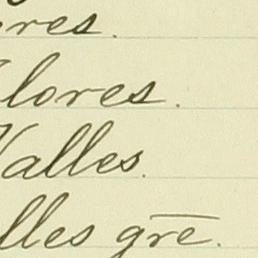 res.
lores.
Valles.
lles grē.